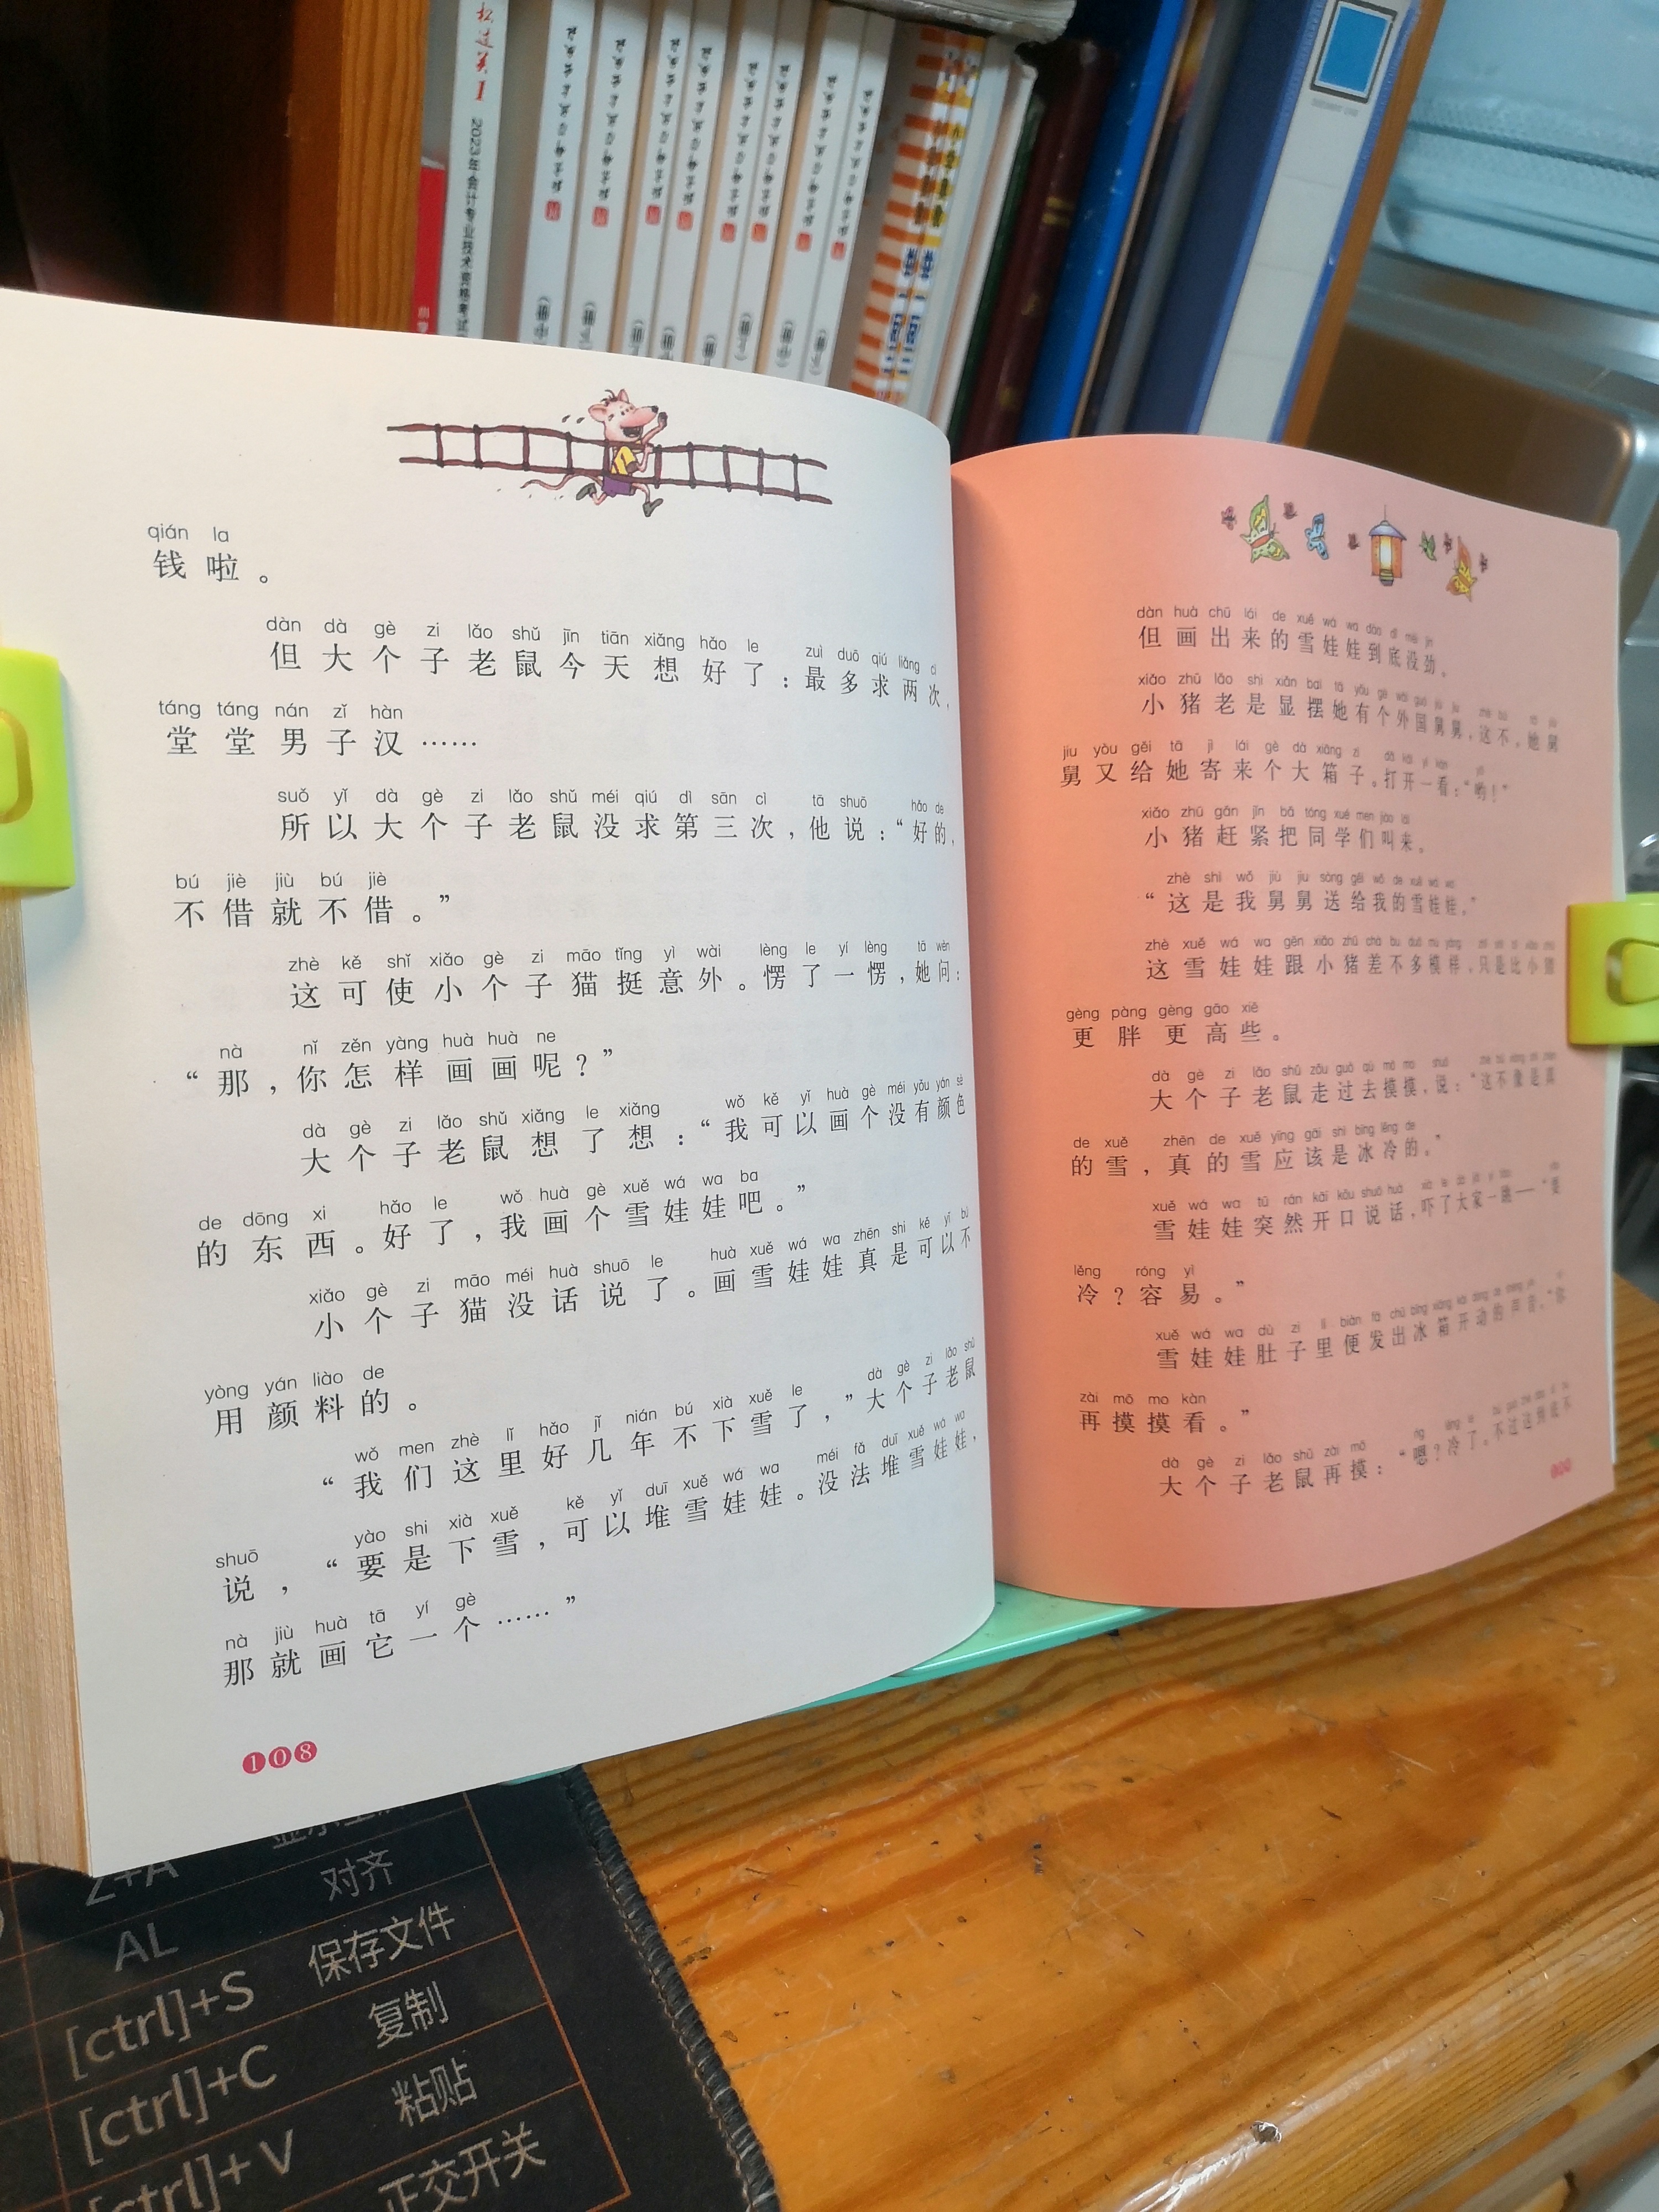 2023年会计专业技术资格考试
qián la
钱啦。
dàn dà gè zi lǎo shǔ jīn tiān xiǎng hǎo le zuì duō qiú liǎng cì
但大个子老鼠今天想好了：最多求两次，
táng táng nán zǐ hàn
堂堂男子汉……
suǒ yǐ dà gè zi lǎo shǔ méi qiú dì sān cì tā shuō hǎo de
所以大个子老鼠没求第三次，他说：“好的，
bú jiè jiù bú jiè
不借就不借。”
zhè kě shǐ xiǎo gè zi māo tǐng yì wài lèng le yí lèng tā wèn
这可使小个子猫挺意外。愣了一愣，她问：
nà nǐ zěn yàng huà huà ne
“那，你怎样画画呢？”
dà gè zi lǎo shǔ xiǎng le xiǎng wǒ kě yǐ huà gè méi yǒu yán sè
大个子老鼠想了想：“我可以画个没有颜色
de dōng xi hǎo le wǒ huà gè xuě wá wa ba
的东西。好了，我画个雪娃娃吧。”
xiǎo gè zi māo méi huà shuō le huà xuě wá wa zhēn shi kě yǐ bù
小个子猫没话说了。画雪娃娃真是可以不
yòng yán liào de
用颜料的。
wǒ men zhè lǐ hǎo jǐ nián bú xià xuě le dà gè zi lǎo shǔ
“我们这里好几年不下雪了，”大个子老鼠
shuō yào shi xià xuě kě yǐ duī xuě wá wa méi fǎ duī xuě wá wa
说，“要是下雪，可以堆雪娃娃。没法堆雪娃娃，
nà jiù huà tā yí gè
那就画它一个……”
108
dàn huà chū lái de xuě wá wa dào dǐ méi jìn
但画出来的雪娃娃到底没劲。
xiǎo zhū lǎo shi xiǎn bai tā yǒu gè wài guó
小猪老是显摆她有个外国舅舅，这不，她舅
jiu yòu gěi tā jì lái gè dà xiāng zi dǎ kāi yí kàn
舅又给她寄来个大箱子。打开一看：“哟！”
xiǎo zhū gǎn jǐn bǎ tóng xué men jiào lái
小猪赶紧把同学们叫来。
zhè shì wǒ jiù jiu sòng gěi wǒ de xuě wá wa
“这是我舅舅送给我的雪娃娃。”
zhè xuě wá wa gēn xiǎo zhū chà bu duō mú yàng
这雪娃娃跟小猪差不多模样，只是比小猪
gèng pàng gèng gāo xiē
更胖更高些。
dà gè zi lǎo shǔ zǒu guò qù mō mo shuō
大个子老鼠走过去摸摸，说：“这不像是真
de xuě zhēn de xuě yīng gāi shì bīng lěng de
的雪，真的雪应该是冰冷的。”
xuě wá wa tū rán kāi kǒu shuō huà
雪娃娃突然开口说话，吓了大家一跳——“要
lěng róng yì
冷？容易。”
xuě wá wa dù zi li biàn fā chū bīng xiāng kāi dòng de shēng yīn
雪娃娃肚子里便发出冰箱开动的声音。“你
zài mō mo kàn
再摸摸看。”
dà gè zi lǎo shǔ zài mō
大个子老鼠再摸：“嗯？冷了。不过这到底不
对齐
AL
[ctrl]+S 保存文件
[ctrl]+C 复制
[ctrl]+V 粘贴
正交开关